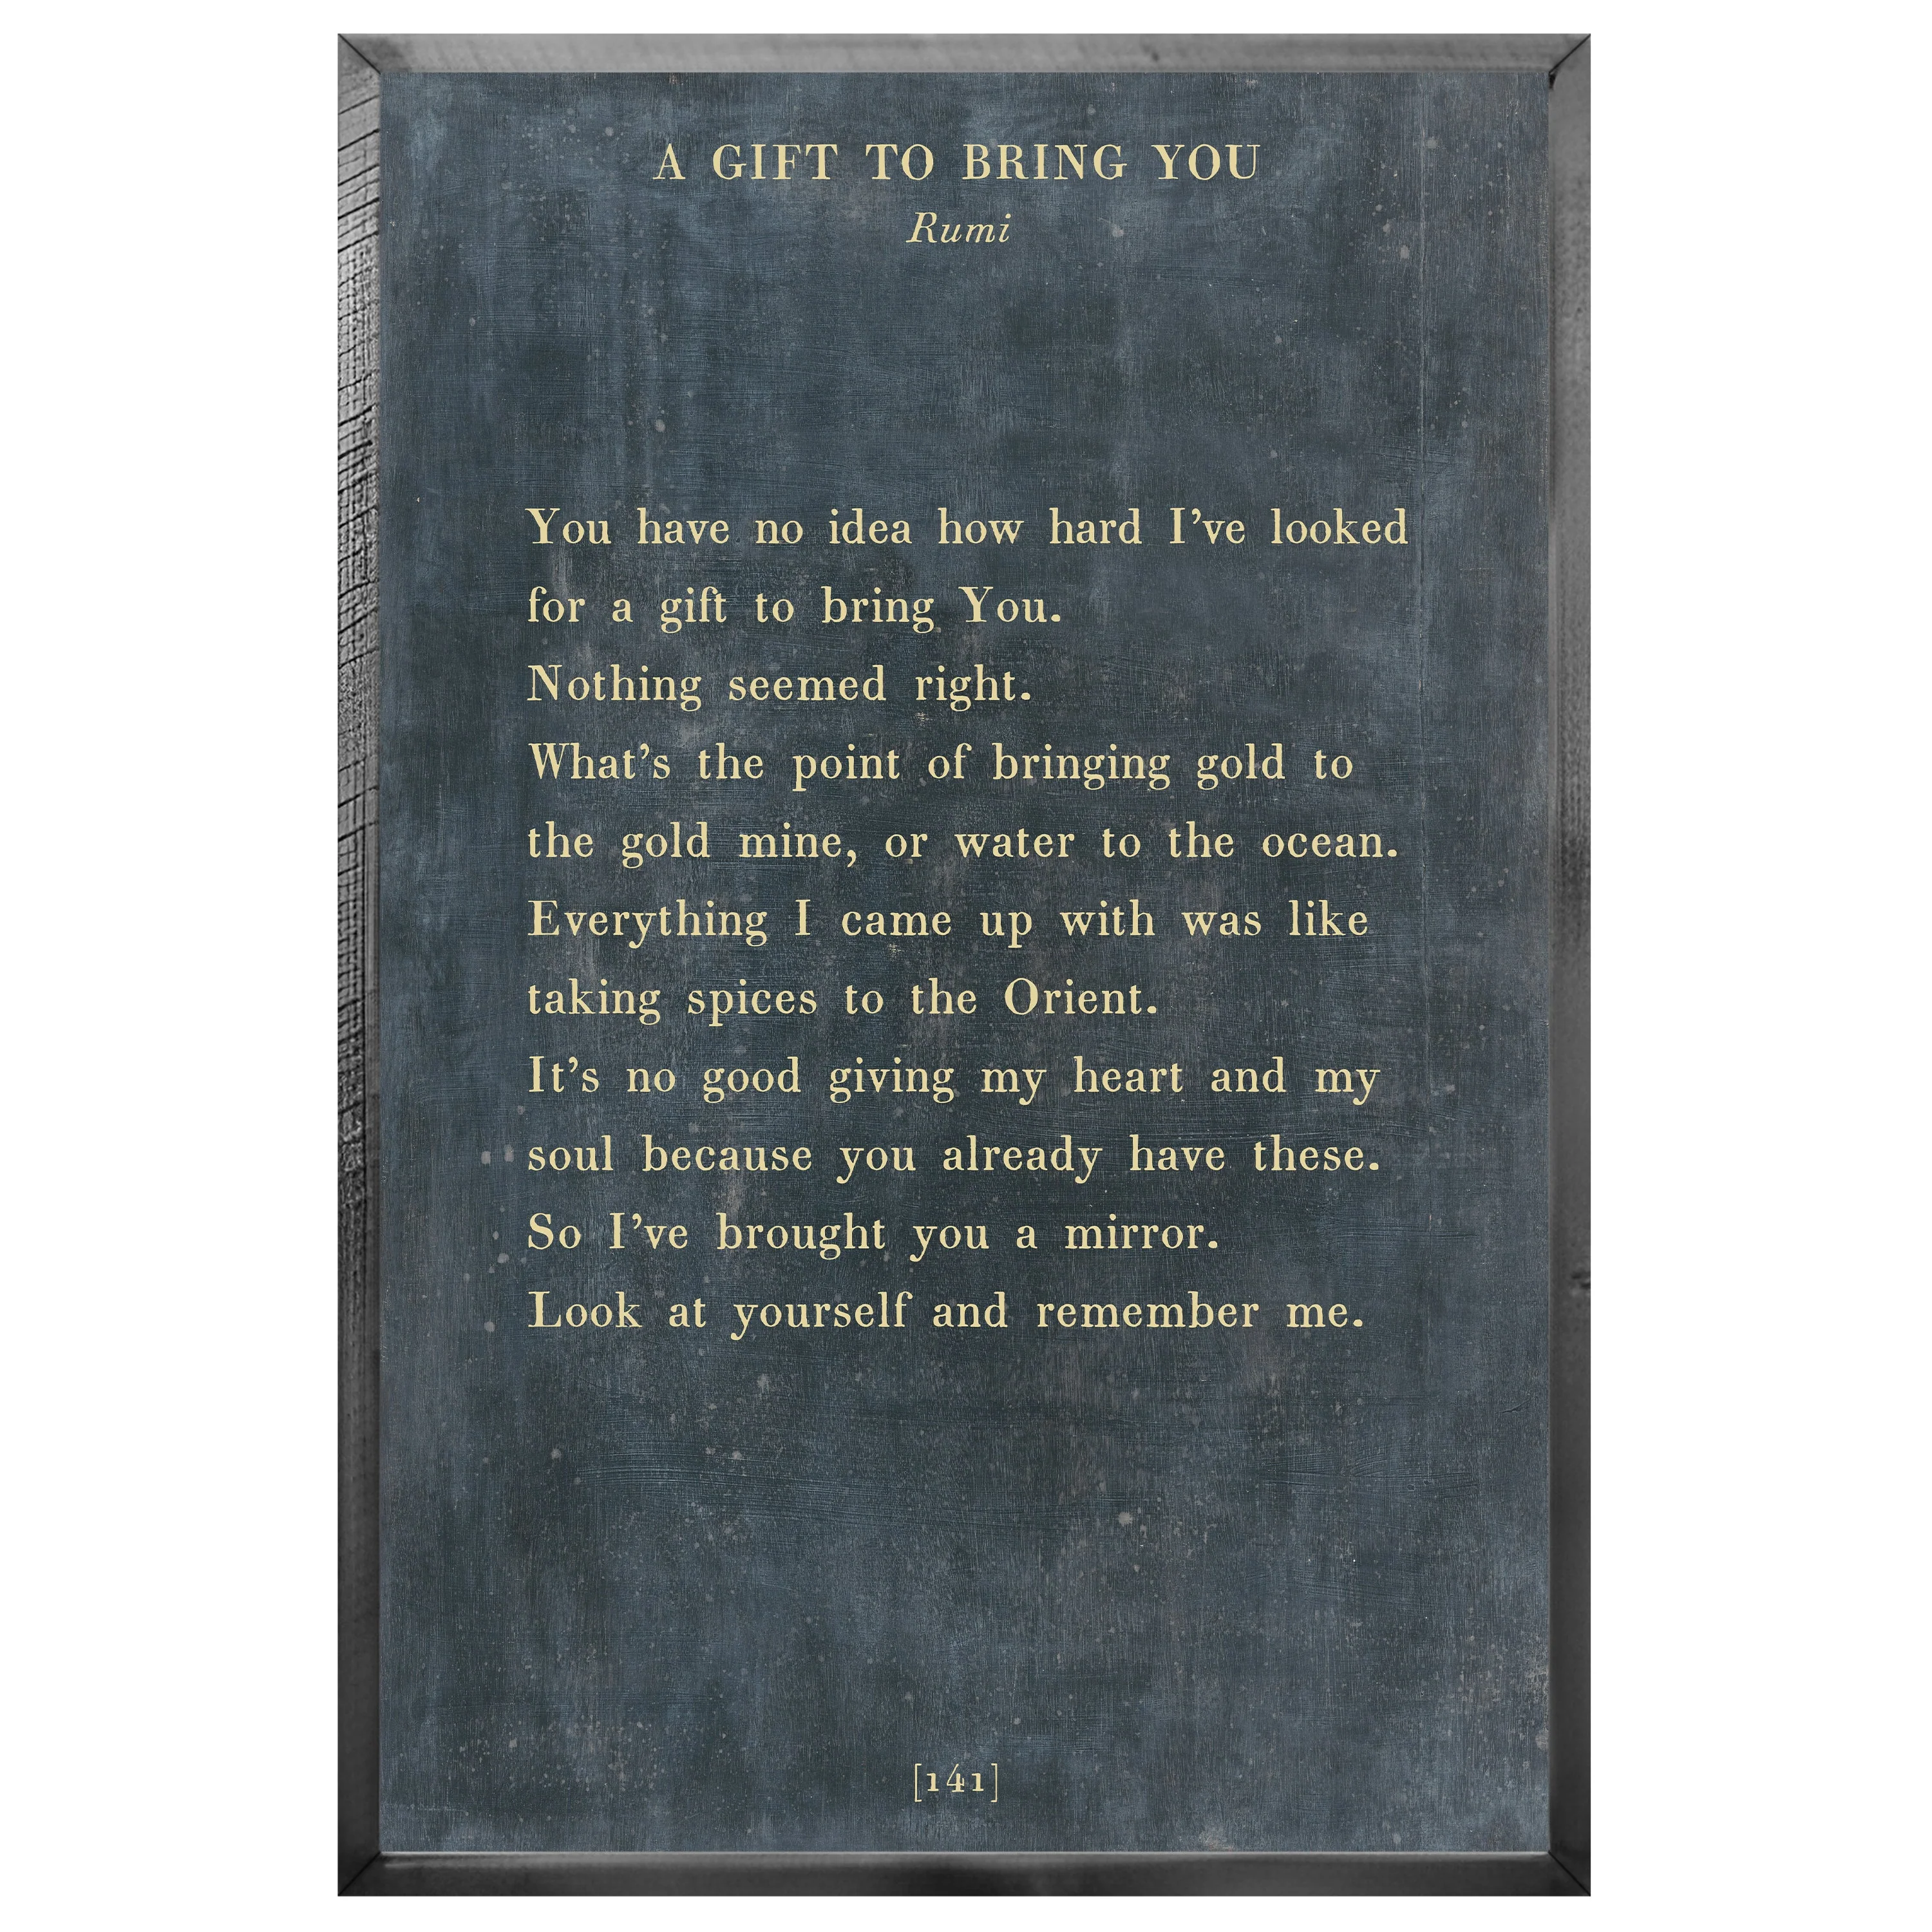 A GIFT TO BRING YOU
Rumi
You have no idea how hard I’ve looked
for a gift to bring You.
Nothing seemed right.
What’s the point of bringing gold to
the gold mine, or water to the ocean.
Everything I came up with was like
taking spices to the Orient.
It’s no good giving my heart and my
soul because you already have these.
So I’ve brought you a mirror.
Look at yourself and remember me.
[141]